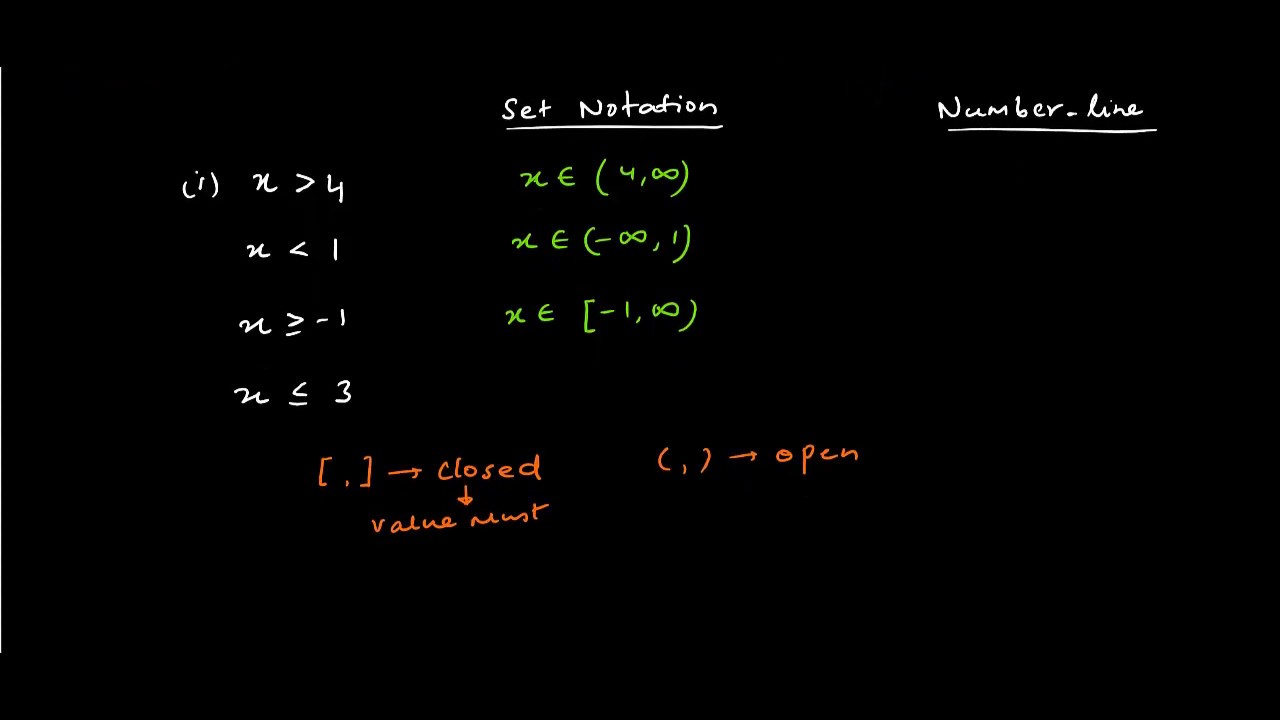 Set Notation Number-line
(i) x > 4 x ∈ (4, ∞)
x < 1 x ∈ (-∞, 1)
x ≥ -1 x ∈ [-1, ∞)
x ≤ 3
[ , ] → closed ( , ) → open
↓
value must